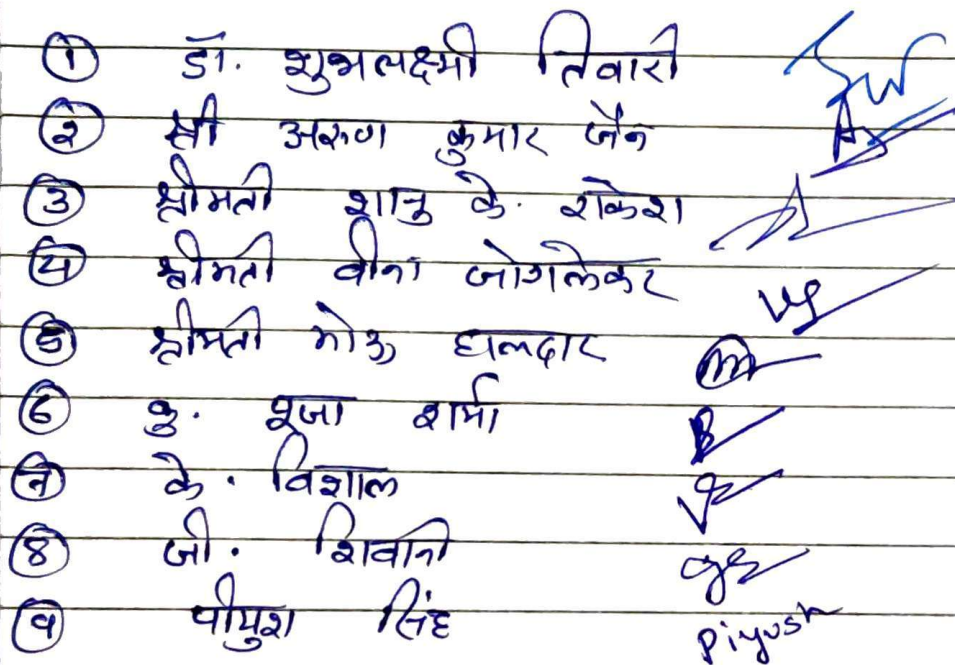 ① डॉ. शुभलक्ष्मी तिवारी
② श्री अरुण कुमार जैन
③ श्रीमती शानु के. राकेश
④ श्रीमती वीना जोगलेकर
⑤ श्रीमती मोऊ हालदार
⑥ कु. पूजा शर्मा
⑦ के. विशाल
⑧ जी. शिवानी
⑨ पीयुश सिंह Piyush